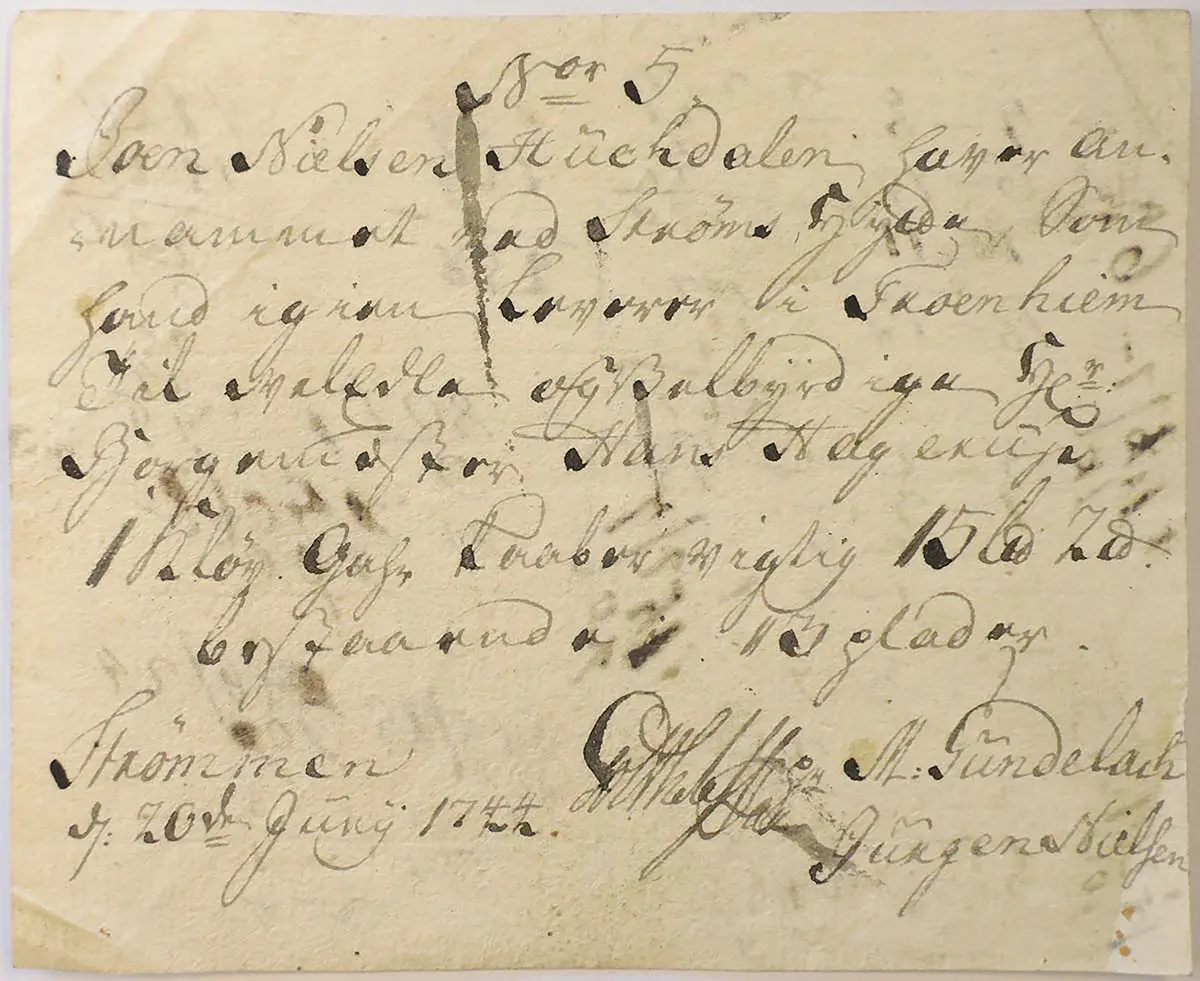 Nor 5.
Joen Nielsen Huchdalen haver an-
nammet ved Strøms Hytte Som
hand igien Leverer i Troenhiem
Til velEdle og Velbyrdige Hr.
Borgemester Hans Hagerup
1 Kløv Gahr Kaaber vigtig 15 lɫd 2 ɫd.
bestaaende i 13 plader.
Strömmen
d: 20de Juny 1744.
M: Gundelach
Jürgen Nielsen